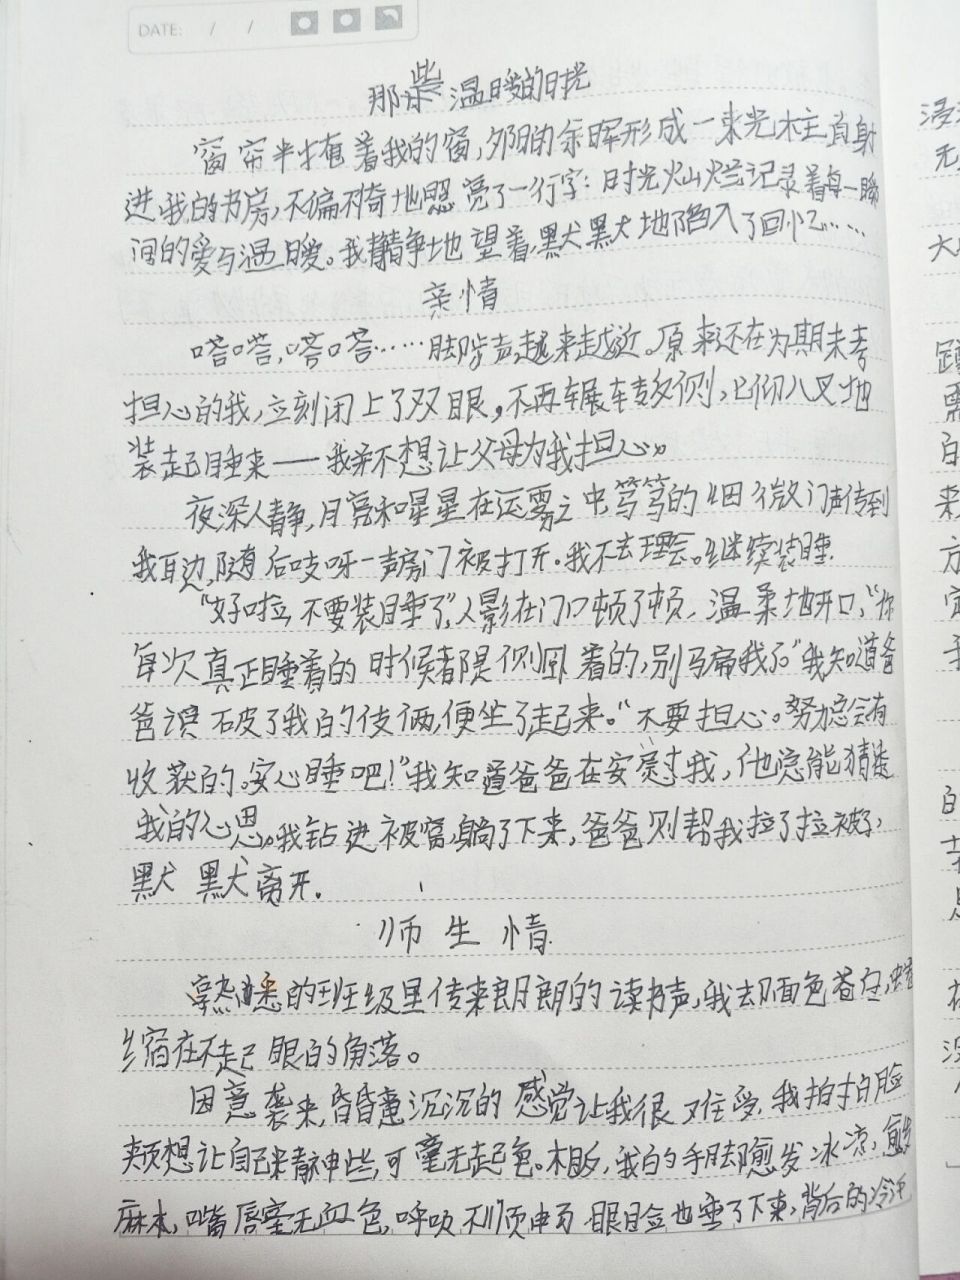 DATE: / /
那些温暖的时光
窗帘半掩着我的窗,夕阳的余晖形成一束光柱直射
进我的书房,不偏不倚地照亮了一行字:时光灿烂记录着每一瞬
间的爱与温暖。我静静地望着,默默地陷入了回忆……
亲情
嗒嗒,嗒嗒……脚步声越来越近。原来还在为期末考
担心的我,立刻闭上了双眼,不再辗转多侧,七仰八叉地
装起睡来——我并不想让父母为我担心。
夜深人静,月亮和星星在云雾之中笃笃的细微门声传到
我耳边,随后吱呀一声房门被打开。我不去理会。继续装睡.
“好啦,不要装睡了”,人影在门口顿了顿,温柔地开口,“你
每次真正睡着的时候都是侧卧着的,别马扁我了。”我知道爸
爸识破了我的伎俩,便坐了起来。“不要担心。努力总会有
收获的。安心睡吧!”我知道爸爸在安慰我,他总能猜透
我的心思。我钻进被窝,躺了下来,爸爸则帮我拉了拉被子,
默默离开.
师生情
熟悉的班级里传来朗朗的读书声,我却面色苍白,蜷
缩在不起眼的角落。
困意袭来,昏昏沉沉的感觉让我很难受,我拍拍脸
颊想让自己精神些,可毫无起色。相反,我的手脚愈发冰凉,愈发
麻木,嘴唇毫无血色,呼吸不顺申眼睑也垂了下来,背后的冷汗